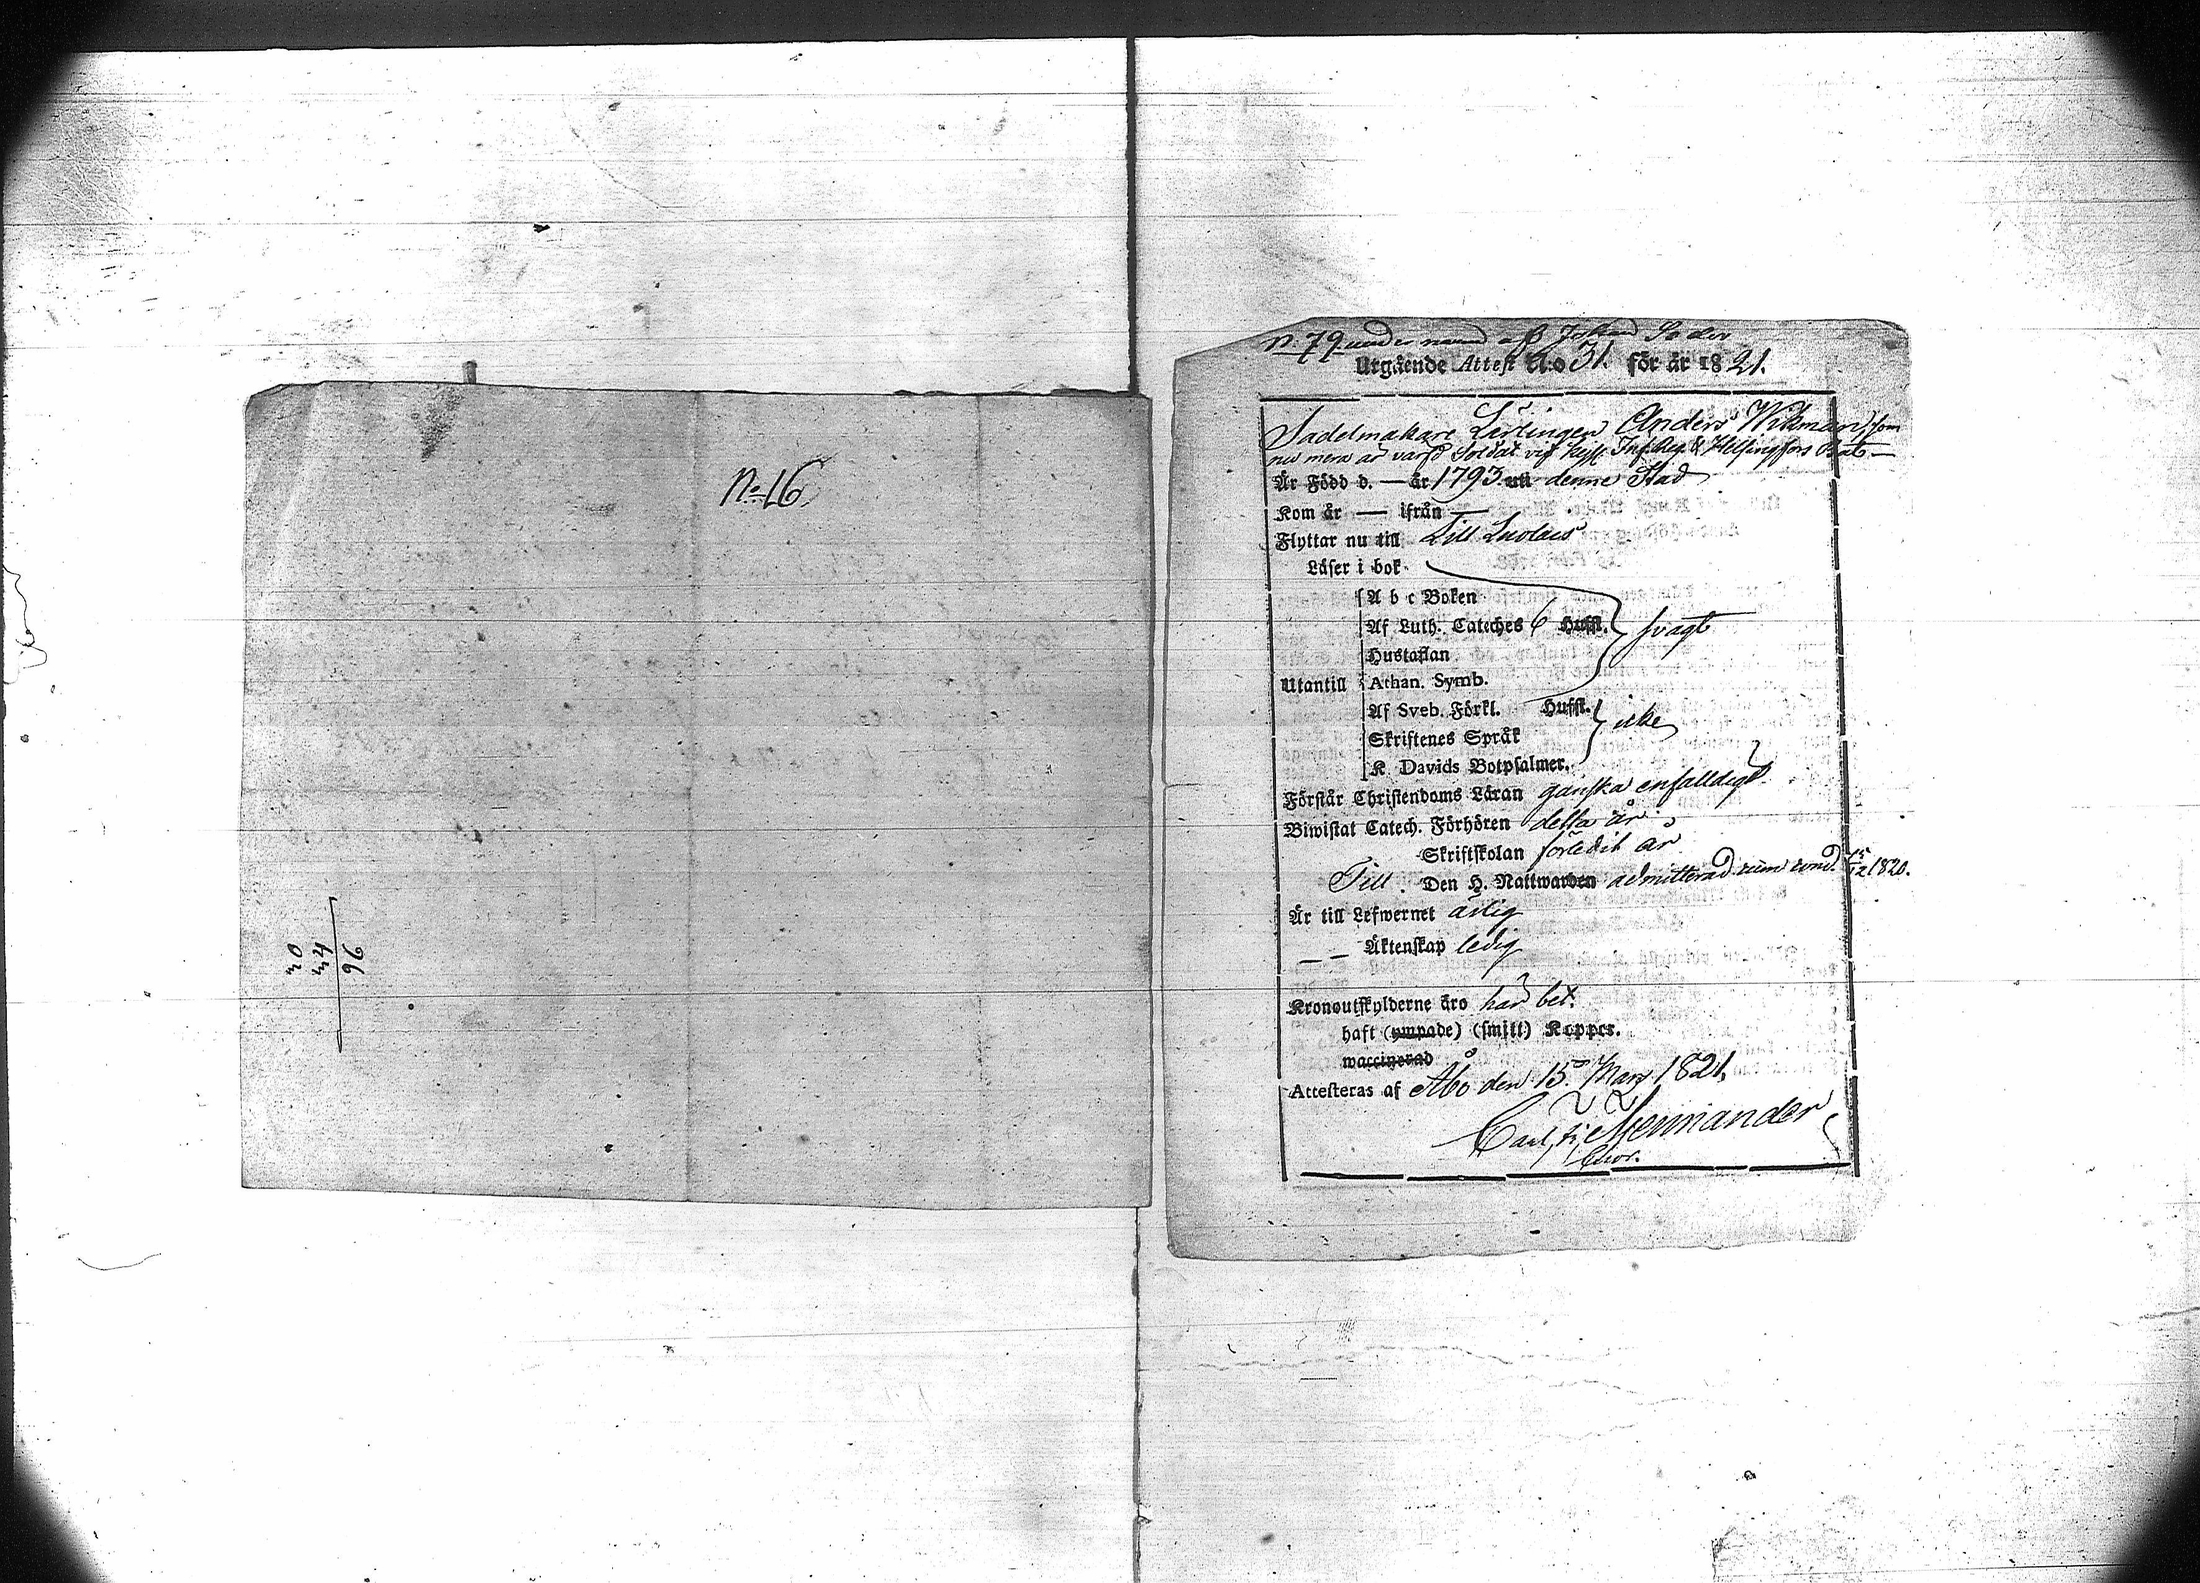 No 16.
30
34
96
N. 79 under namn af Johan Söder
Utgående Attest N:o 31. för år 1821.
Sadelmakare Lärlingen Anders Wikman, som
nu mera är värfd Soldat vid Inf. Reg. & Helsingfors Bat.
Är Född d. — år 1793 uti denne Stad
Kom år — ifrån —
Flyttar nu till
Läser i bok
A b c Boken
Af Luth. Cateches 6 Hufst. svagt
Hustaflan
Utantill Athan. Symb.
Af Sveb. Förkl. Hufst. icke
Skriftenes Språk
K. Davids Botpsalmer.
Förstår Christendoms Läran ganska enfalldigt
Biwistat Catech. Förhören detta år
Skriftskolan förledit år
Till Den H. Nattwarden admitterad cum cond. 15/12 1820.
Är till Lefwernet ärlig
— — Äktenskap ledig
Kronoutskylderne äro har bet.
haft (ympade) (smitt) Koppor.
waccinerad
Attesteras af Åbo den 15 Mars 1821.
Carl Mennander